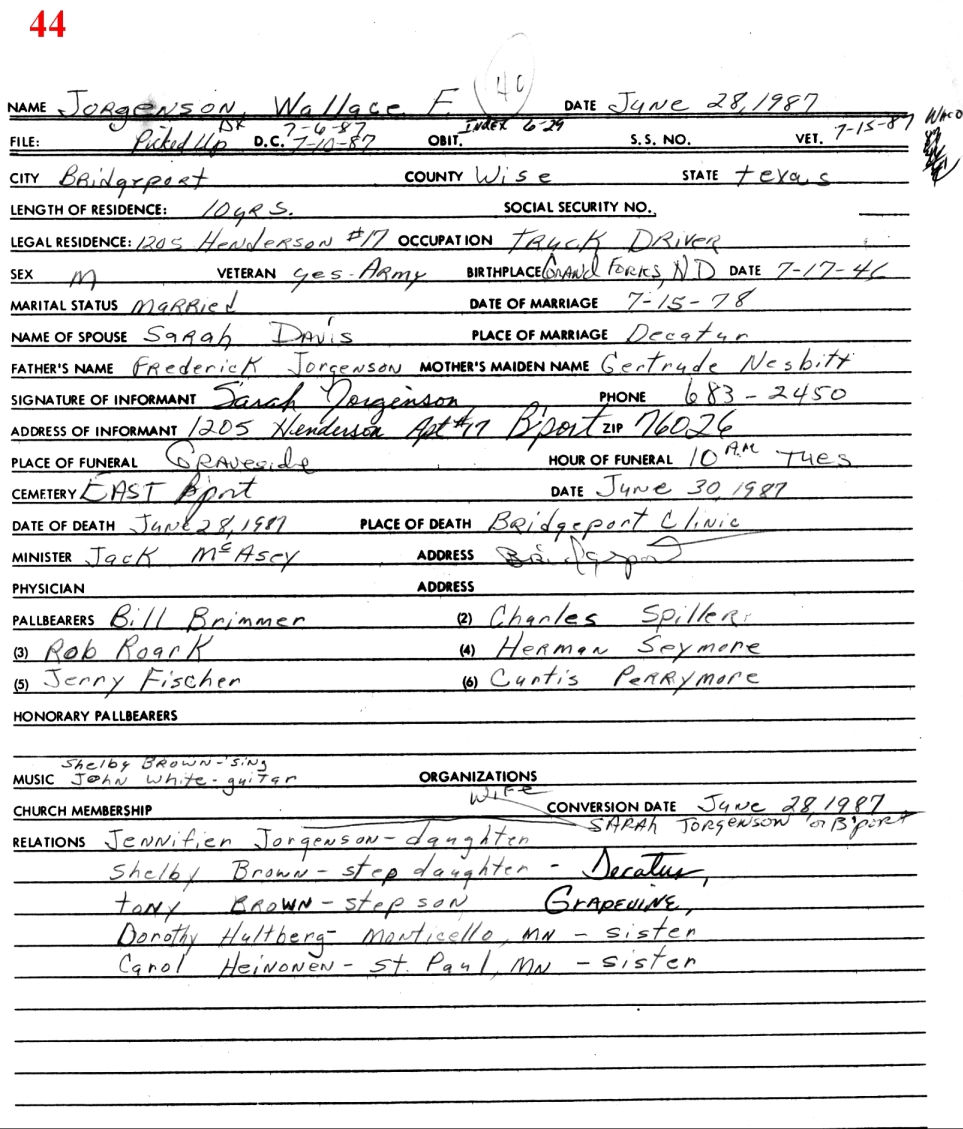 44
40
NAME Jorgenson, Wallace F. DATE June 28, 1987
FILE: Picked Up D.C. 7-6-87 7-10-87 OBIT. INDEX 6-29 S.S. NO. VET. 7-15-87 WACO
CITY Bridgeport COUNTY Wise STATE texas
LENGTH OF RESIDENCE: 10 yrs. SOCIAL SECURITY NO.
LEGAL RESIDENCE: 1205 Henderson #17 OCCUPATION Truck Driver
SEX M VETERAN yes - Army BIRTHPLACE Grand Forks, ND DATE 7-17-46
MARITAL STATUS Married DATE OF MARRIAGE 7-15-78
NAME OF SPOUSE Sarah Davis PLACE OF MARRIAGE Decatur
FATHER'S NAME Frederick Jorgenson MOTHER'S MAIDEN NAME Gertrude Nesbitt
SIGNATURE OF INFORMANT Sarah Jorgenson PHONE 683-2450
ADDRESS OF INFORMANT 1205 Henderson Apt #17 B'port ZIP 76026
PLACE OF FUNERAL Graveside HOUR OF FUNERAL 10 A.M Tues
CEMETERY EAST B'port DATE June 30, 1987
DATE OF DEATH June 28, 1987 PLACE OF DEATH Bridgeport Clinic
MINISTER Jack McAsey ADDRESS Bridgeport
PHYSICIAN ADDRESS
PALLBEARERS Bill Brimmer (2) Charles Spiller
(3) Rob Roark (4) Herman Seymore
(5) Jerry Fischer (6) Curtis Perrymore
HONORARY PALLBEARERS
Shelby Brown - sing
MUSIC John White - guitar ORGANIZATIONS
CHURCH MEMBERSHIP CONVERSION DATE June 28, 1987
Wife SARAH JORGENSON of B'port
RELATIONS Jennifier Jorgenson - daughter
Shelby Brown - step daughter - Decatur,
tony Brown - step son GRAPEVINE,
Dorothy Hultberg - Monticello, MN - sister
Carol Heinonen - St. Paul, MN - sister